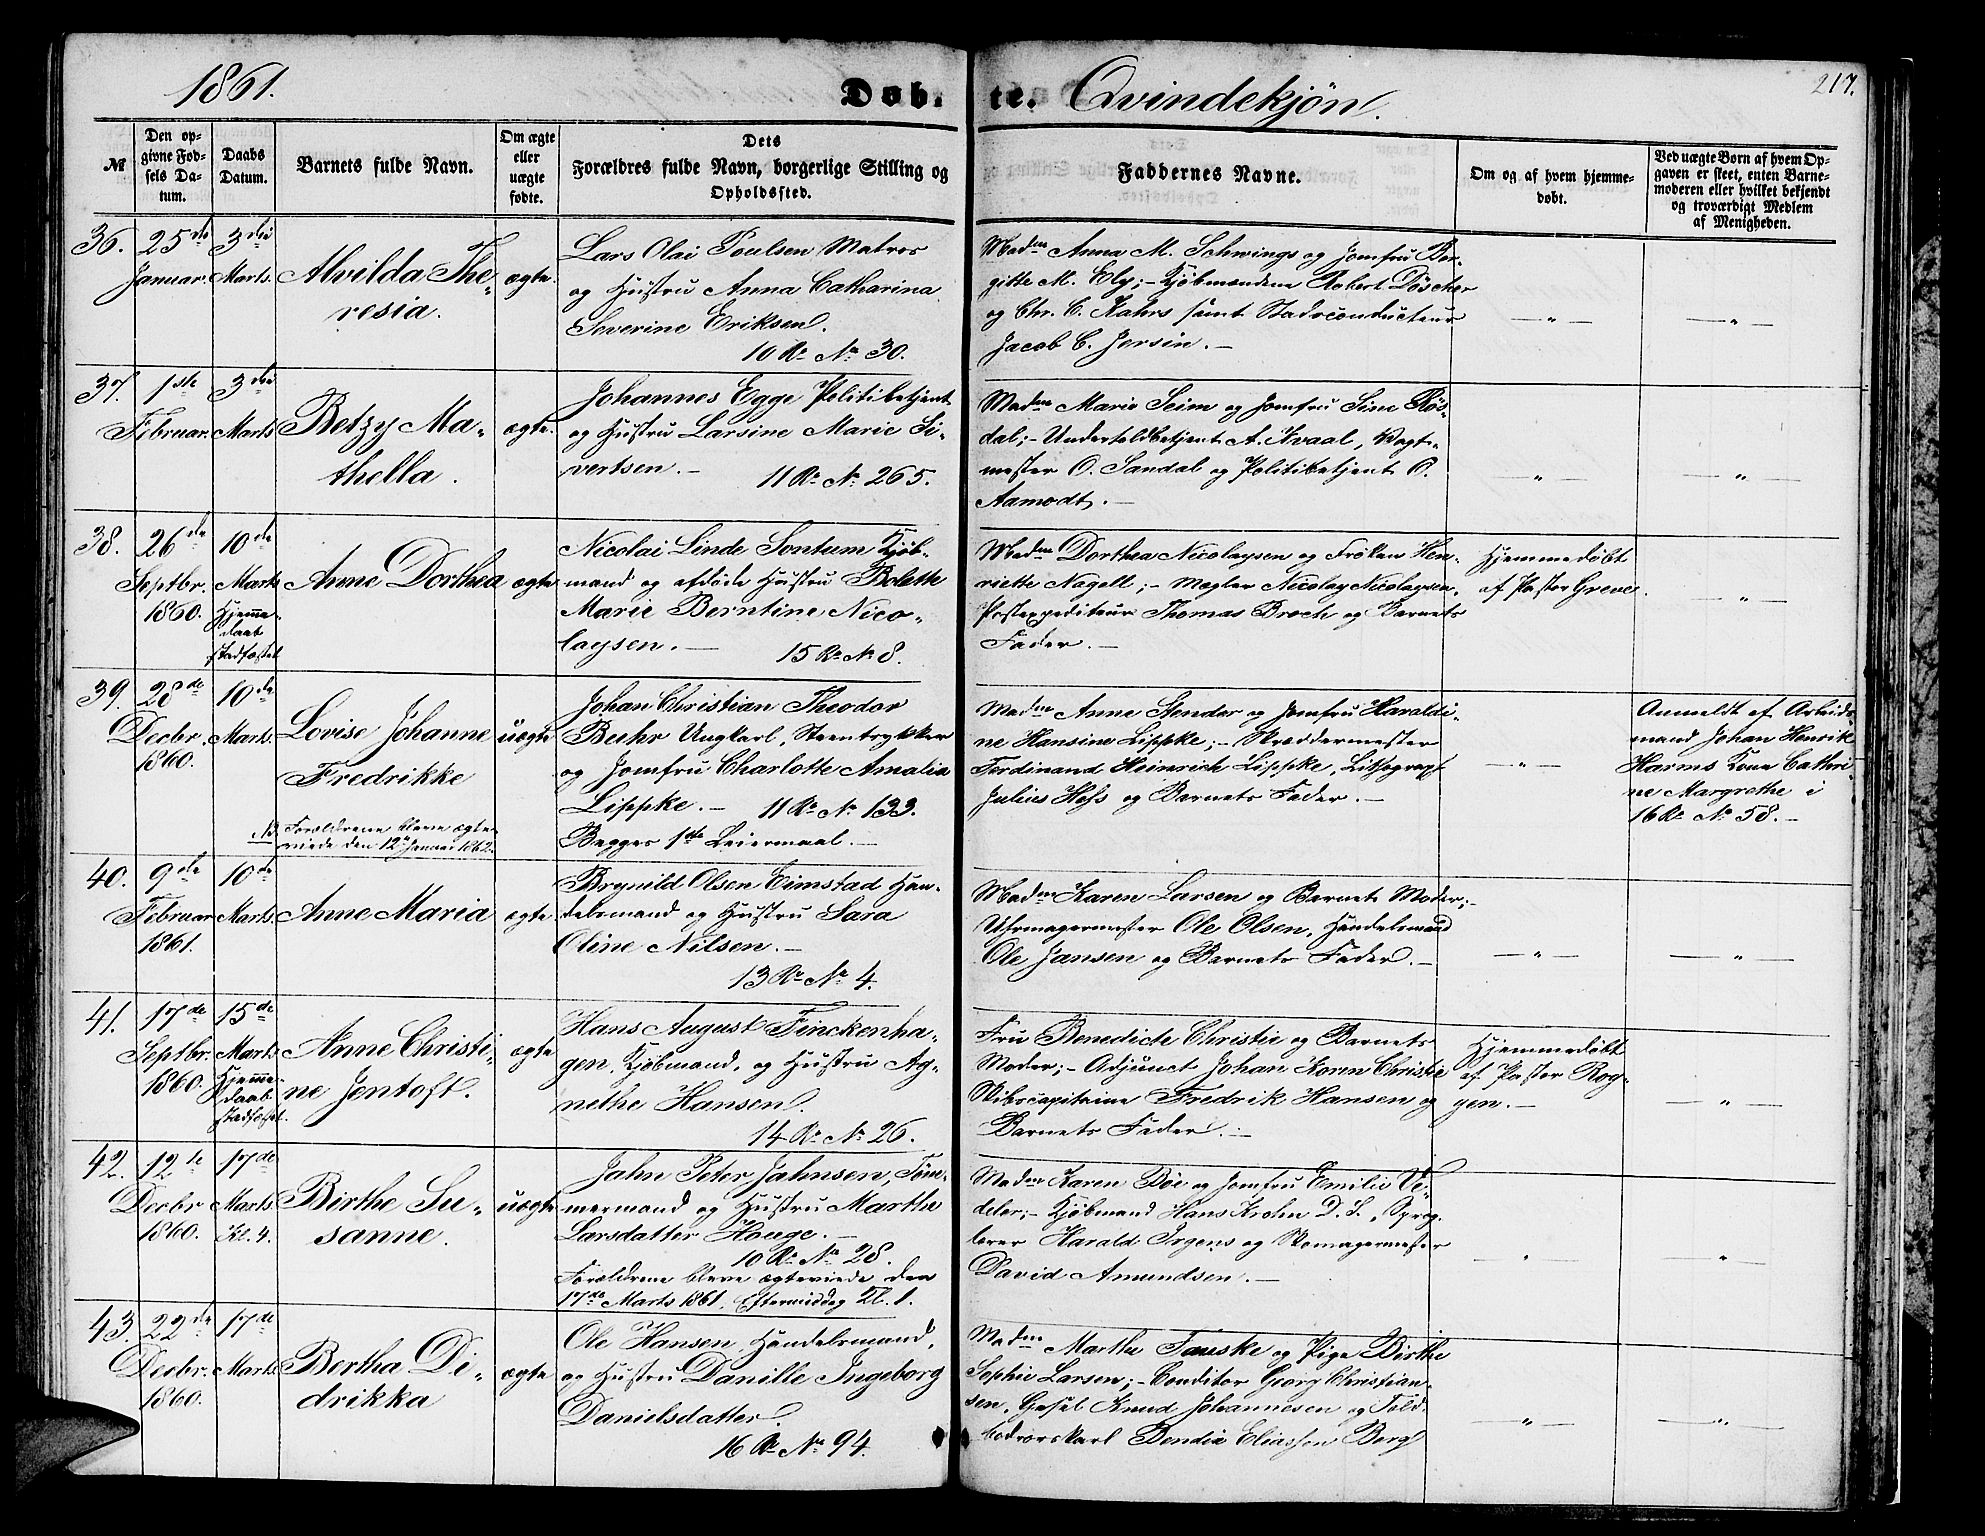 1861.
Døb-
te. Qvindekjøn.
217.
№
Den op-
givne Fød-
sels Da-
tum.
Daabs
Datum.
Barnets fulde Navn.
Om ægte
eller
uægte
fødte.
Dets
Forældres fulde Navn, borgerlige Stilling og
Opholdssted.
Faddernes Navne.
Om og af hvem hjemme-
døbt.
Ved uægte Børn af hvem Op-
gaven er skeet, enten Barne-
moderen eller hvilket bekjendt
og troværdigt Medlem
af Menigheden.
36.
25de
Januar.
3die
Marts.
Alvilda The-
resia.
ægte.
Lars Olai Poulsen Matros
og Hustru Anna Catharina
Severine Eriksen.
10 R. No 30.
Madme Anna M. Schwings og Jomfru Ber-
gitte M. Ely; – Kjøbmændene Robert Döscher
og Chr. C. Kahrs samt Stadsconducteur
Jacob C. Jersin. –
— „ —
— „ —
37.
1ste
Februar.
3die
Marts
Betzy Ma-
thella.
ægte.
Johannes Egge Politibetjent
og Hustru Larsine Marie Si-
vertsen. –
11 R. No 265.
Madme Marie Seim og Jomfru Sine Røs-
dal; – Undertoldbetjent A. Kvaal, Vagt-
mester O. Sandal og Politibetjent O.
Aamodt. –
— „ —
— „ —
38.
26de
Septbr.
1860.
10de
Marts
Hjemme-
daab
stadfæstet
Anne Dorthea
ægte
Nicolai Linde Sontum Kjøb-
mand og afdøde Hustru Bolette
Marie Berntine Nico-
laysen. –
15 R. No 8.
Madme Dorthea Nicolaysen og Frøken Hen-
riette Nagell; – Megler Nicolay Nicolaysen,
Postexpediteur Thomas Broch og Barnets
Fader. –
Hjemmedøbt
af Pastor Greve.
— „ —
39.
28de
Decbr.
1860.
10de
Marts.
Lovise Johanne
Fredrikke
Forældrene bleve ægte-
viede den 12te Januar 1862.
uægte
Johan Christian Theodor
Behr Ungkarl, Steentrykker
og Jomfru Charlotte Amalia
Lippke. –
11 R. No 133.
Begges 1ste Leiermaal. –
Madme Anne Stender og Jomfru Haraldi-
ne Hansine Lippke; – Skræddermester
Ferdinand Heinrich Lippke, Lithograph
Julius Hess og Barnets Fader. –
— „ —
Anmeldt af Arbeids-
mand Johan Henrik
Harms Kone Cathri-
ne Margrethe i
16 R. No 58. –
40.
9de
Februar
1861.
10de
Marts.
Anne Maria
ægte
Brynild Olsen Eimstad Han-
delsmand og Hustru Sara
Oline Nilsen. –
13 R. No 4.
Madme Karen Larsen og Barnets Moder; –
Uhrmagermester Ole Olsen, Handelsmand
Ole Jansen og Barnets Fader. –
— „ —
— „ —
41.
17de
Septbr.
1860.
15de
Marts.
Hjemme-
daab
stadfæstet.
Anne Christi-
ne Jentoft.
ægte
Hans August Finckenha-
gen, Kjøbmand, og Hustru Ag-
nethe Hansen.
14 R. No 26.
Fru Benedicte Christie og Barnets
Moder; – Adjunct Johan Koren Christie
Skibscapitaine Fredrik Hansen og
Barnets Fader. –
Hjemmedøbt
af Pastor Rog-
gen. –
— „ —
42.
12te
Decbr
1860.
17de
Marts.
Kl. 4.
Birthe Su-
sanne.
uægte
Jahn Peter Jahnsen, Tøm-
mermand og Hustru Marthe
Larsdatter Houge. –
10 R. No 28.
Forældrene bleve ægteviede den
17de Marts 1861, Eftermiddag Kl. 1.
Madme Karen Bøe og Jomfru Emilie Vi-
deler; – Kjøbmand Hans Krohn D. S., Sprog-
lærer Harald Irgens og Skomagermester
David Amundsen. –
„
„
43.
22de
Decbr.
1860.
17de
Marts.
Bertha Di-
drikka
ægte
Ole Hansen Handelsmand,
og Hustru Danille Ingeborg
Danielsdatter.
16 R. No 94.
Madme Marthe Fauske og Pige Birthe
Sophie Larsen; – Conditor Georg Christian-
sen, Gesel Knud Johannesen og Told-
bodrorskarl Bendix Eliassen Berg
— „ —
— „ —